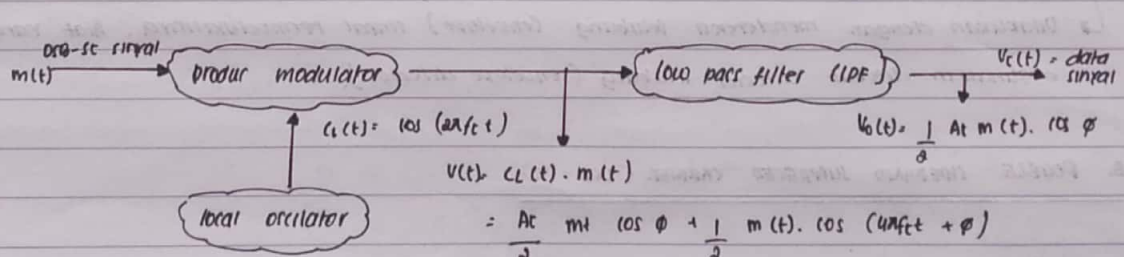 DSB-SC sinyal
m(t)
produk modulator
low pass filter (LPF)
Vc(t) = data
sinyal
CL(t) = cos (2πfc t)
Vo(t) = 1/2 Ac m(t). cos ø
V(t) = CL(t) . m(t)
local oscilator
= Ac/2 mt cos ø + 1/2 m(t). cos (4πfct + ø)